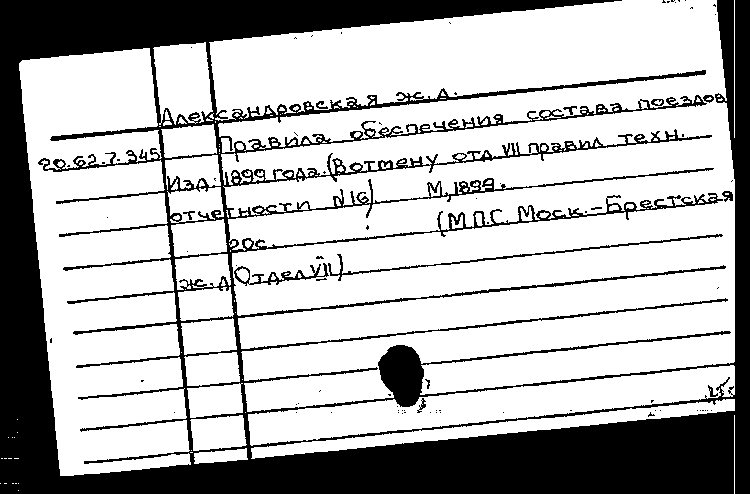 Александровская ж.д.
20.62.7.345 Правила обеспечения состава поездов
Изд. 1899 года. (Вотмену отд. VII правил техн.
отчетности №16). М., 1899.
20с. (М.П.С. Моск.-Брестская
ж.д. Отдел VII).